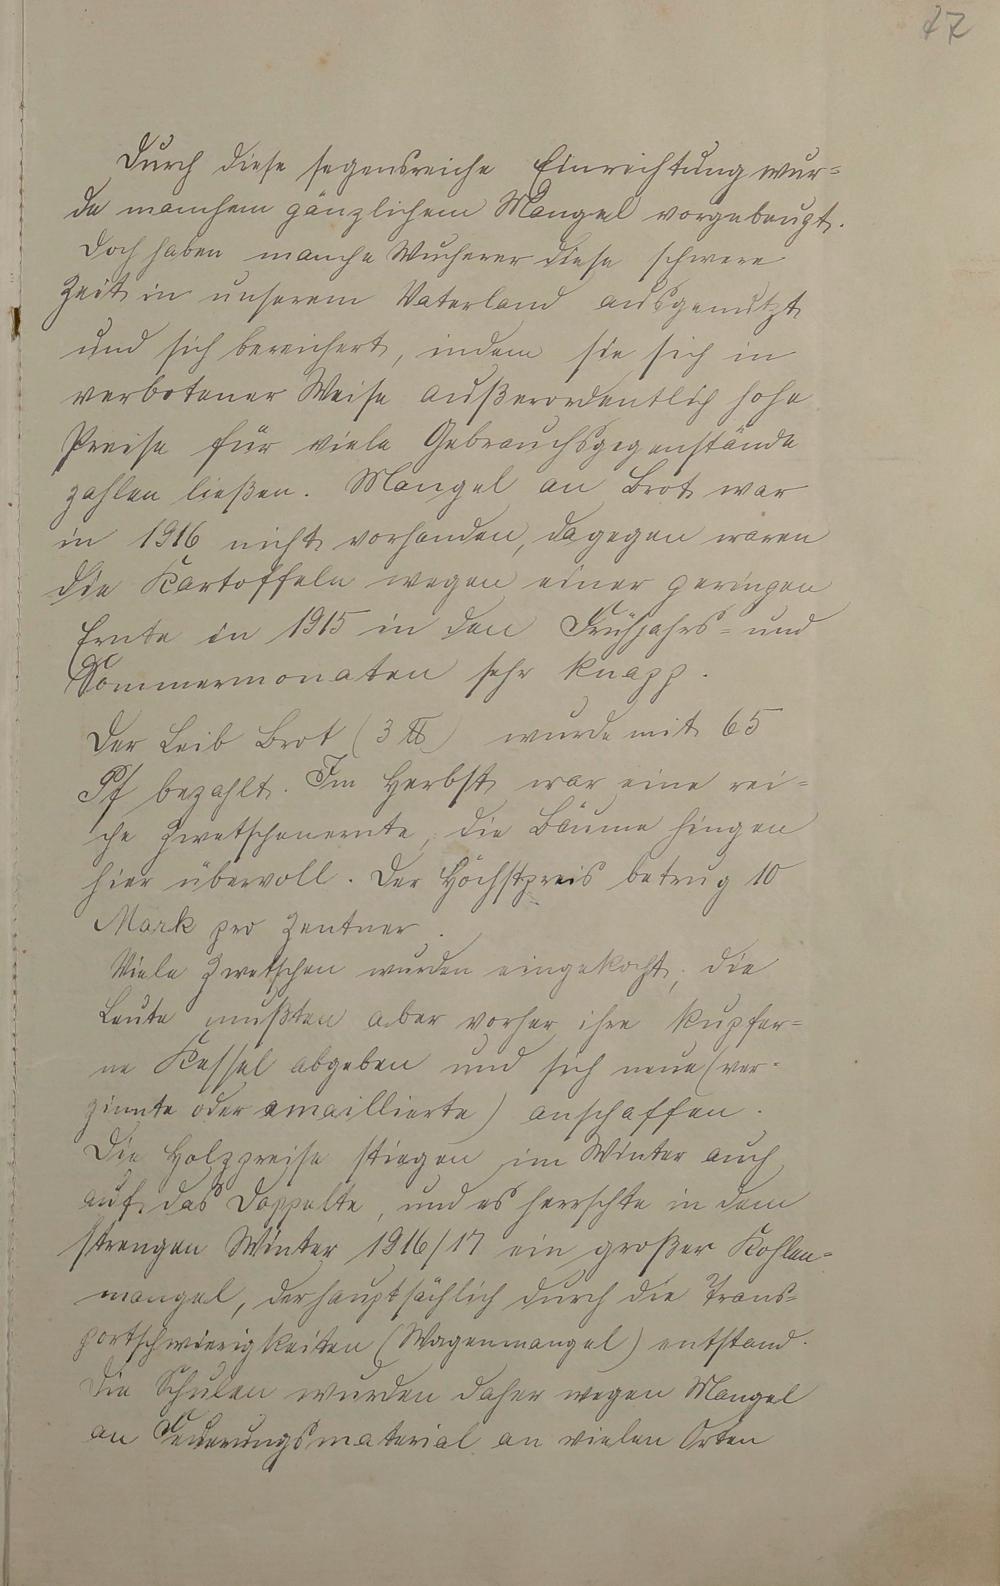 77
Durch diese segensreiche Einrichtung wur=
de manchem gänzlichem Mangel vorgebeugt.
Doch haben manche Wucherer diese schwere
Zeit in unserem Vaterland ausgenutzt
und sich bereichert, indem sie sich in
verbotener Weise außerordentlich hohe
Preise für viele Gebrauchsgegenstände
zahlen ließen. Mangel an Brot war
in 1916 nicht vorhanden, dagegen waren
die Kartoffeln wegen einer geringen
Ernte in 1915 in den Frühjahrs= und
Sommermonaten sehr knapp.
Der Leib Brot (3 ℔) wurde mit 65
Pf bezahlt. Im Herbst war eine rei=
che Zwetschenernte, die Bäume hingen
hier übervoll. Der Höchstpreis betrug 10
Mark pro Zentner.
Viele Zwetschen wurden eingekocht, die
Leute mußten aber vorher ihre kupfer=
ne Kessel abgeben und sich neue (ver=
zinnte oder emaillierte) anschaffen.
Die Holzpreise stiegen im Winter auch
auf das Doppelte, und es herrschte in dem
strengen Winter 1916/17 ein großer Kohlen=
mangel, der hauptsächlich durch die Trans=
portschwierigkeiten (Wagenmangel) entstand.
Die Schulen wurden daher wegen Mangel
an Feuerungsmaterial an vielen Orten